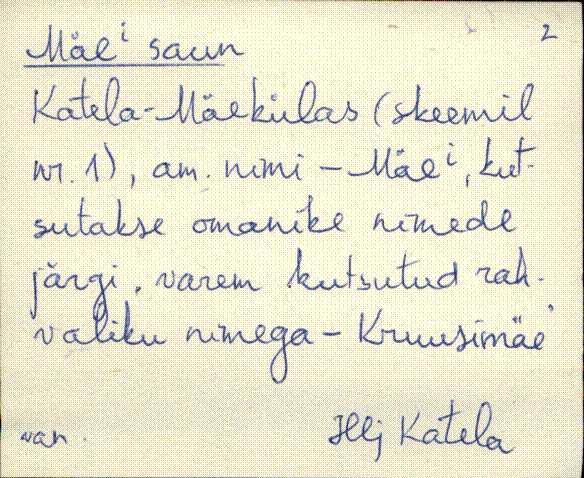 2
Mäeⁱ saun
Katela-Mäekülas (skeemil
nr. 1), am. nimi – Mäeⁱ, kut-
sutakse omanike nimede
järgi, varem kutsutud rah-
valiku nimega – Kruusimäe'
van. Illj Katela